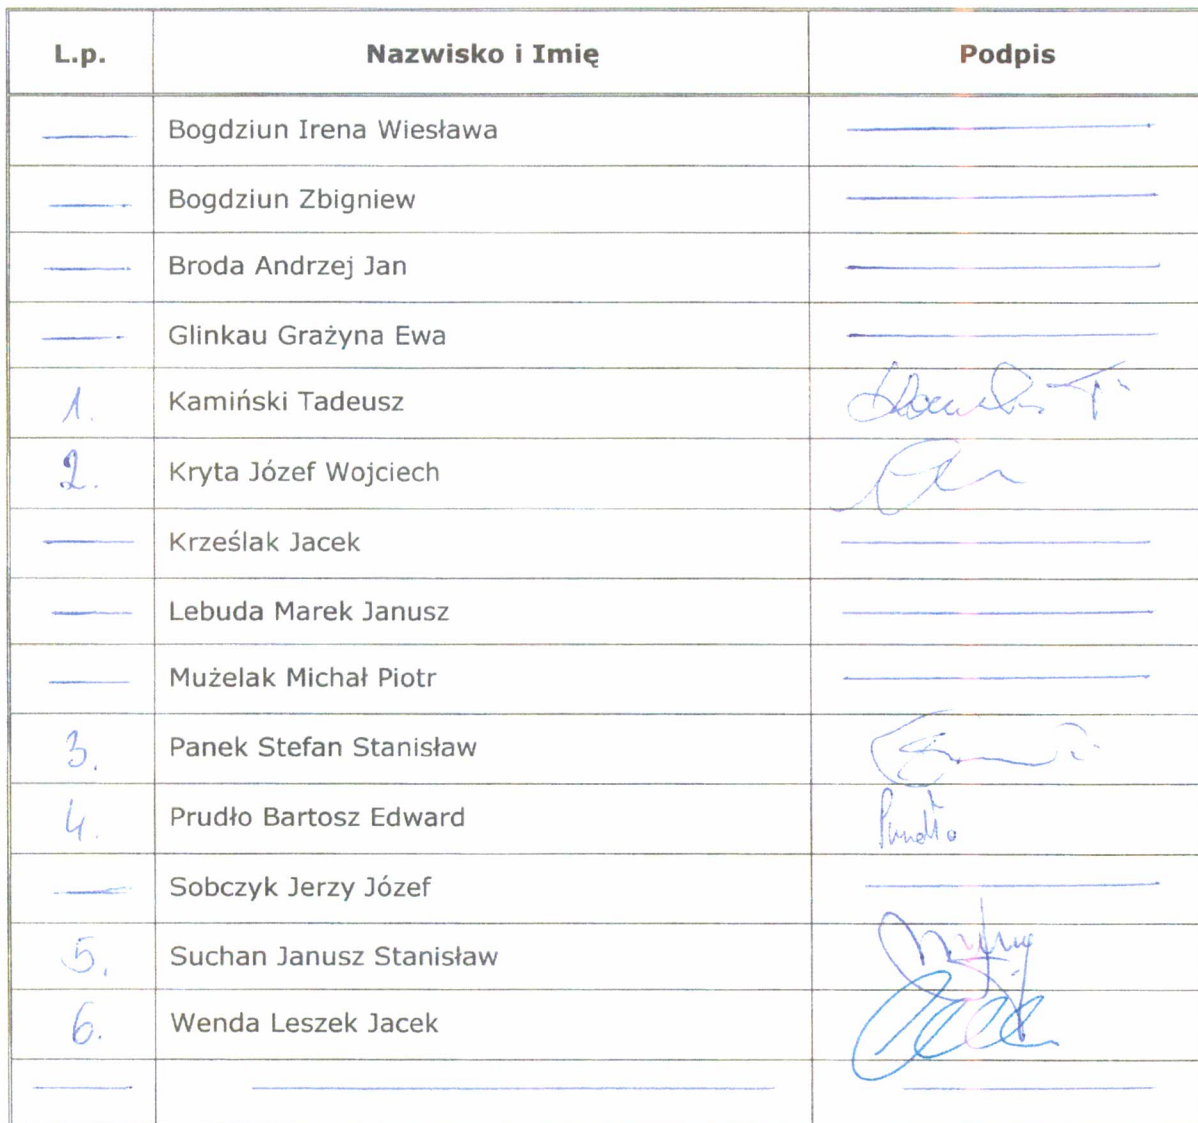 L.p. Nazwisko i Imię Podpis
Bogdziun Irena Wiesława
Bogdziun Zbigniew
Broda Andrzej Jan
Glinkau Grażyna Ewa
1. Kamiński Tadeusz
2. Kryta József Wojciech
Krześlak Jacek
Lebuda Marek Janusz
Mużelak Michał Piotr
3. Panek Stefan Stanisław
4. Prudło Bartosz Edward Prudło
Sobczyk Jerzy Józef
5. Suchan Janusz Stanisław
6. Wenda Leszek Jacek